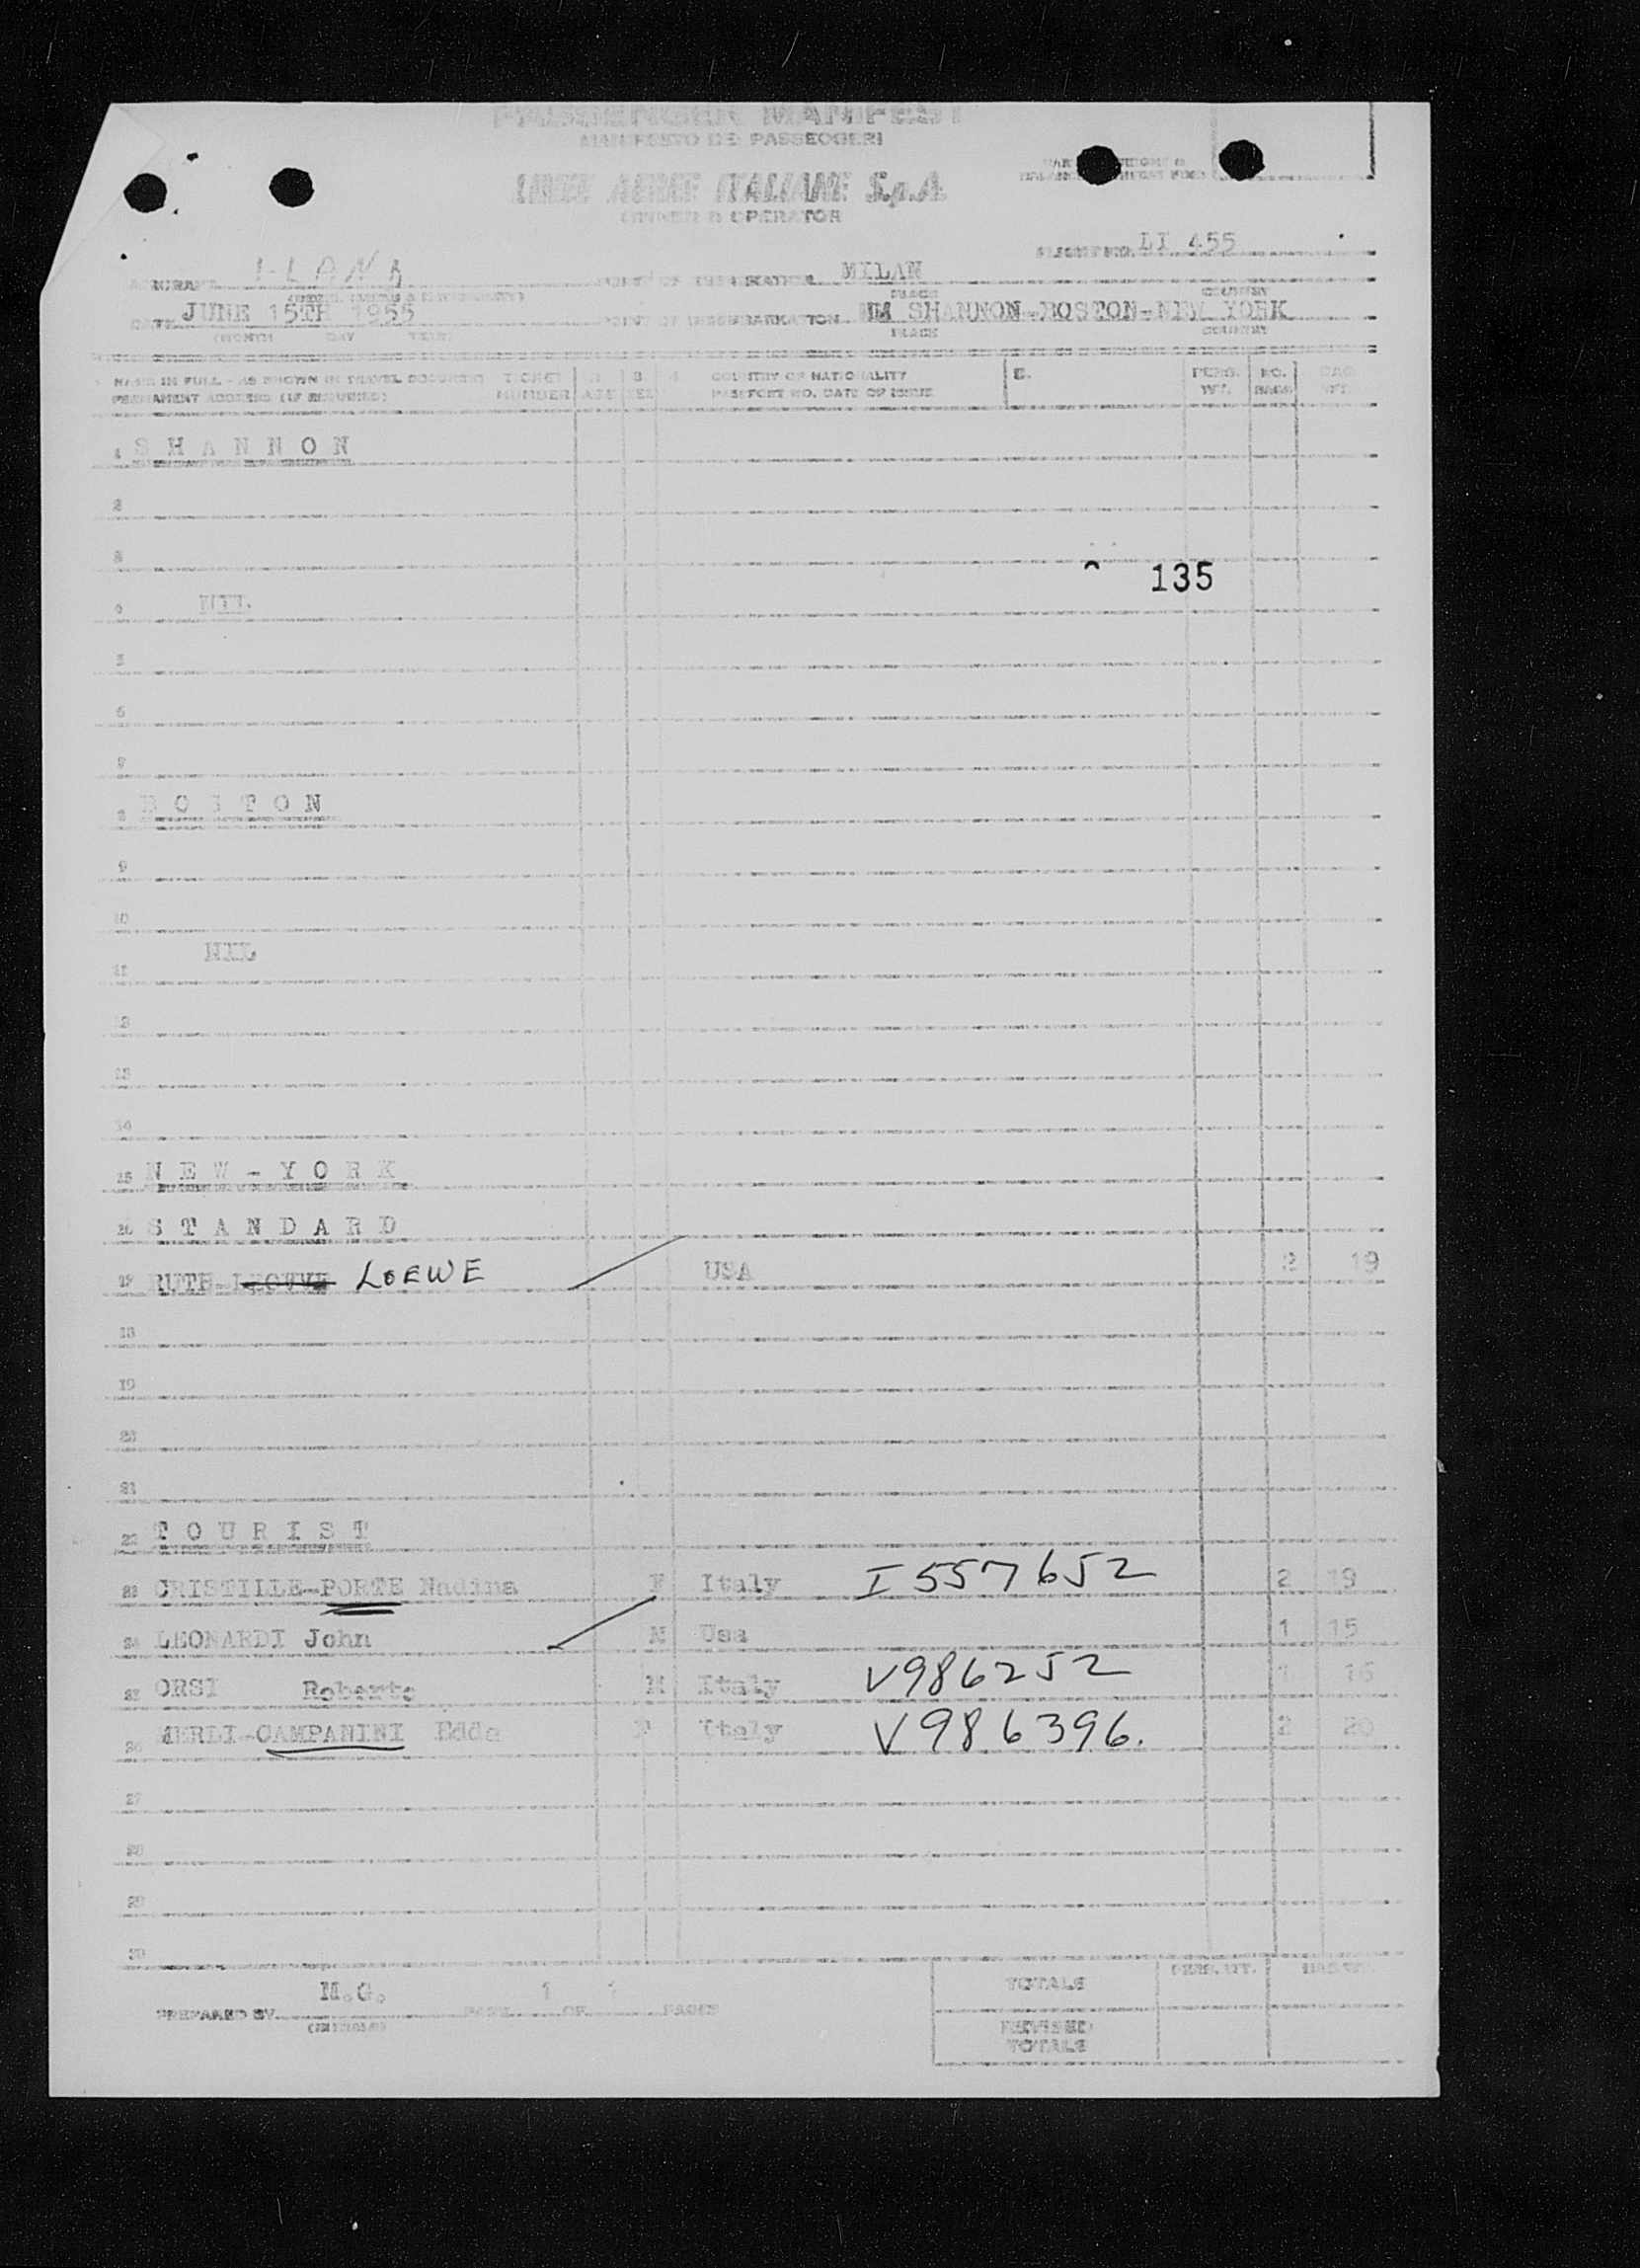 PASSENGER MANIFEST
MANIFESTO DEI PASSEGGERI
LINEE AEREE ITALIANE S.p.A.
OWNER & OPERATOR
FLIGHT NO. LI 455
AIRCRAFT I-LANA POINT OF EMBARKATION MILAN
PLACE COUNTRY
DATE JUNE 15TH 1955 POINT OF DISEMBARKATION SHANNON-BOSTON-NEW YORK
(MONTH DAY YEAR) PLACE COUNTRY
NAME IN FULL - AS SHOWN IN TRAVEL DOCUMENT TICKET COUNTRY OF NATIONALITY PERS. NO. BAG
PERMANENT ADDRESS (IF REQUIRED) NUMBER AGE SEX PASSPORT NO. DATE OF ISSUE WT. BAGS WT.
1 SHANNON
2
3
135
4 NIL
5
6
7
8 BOSTON
9
10
NIL
11
12
13
14
15 NEW-YORK
16 STANDARD
17 RUTH LOEWE USA 2 19
18
19
20
21
22 TOURIST
23 CRISTILLE-PORTE Nadina F Italy I 557652 2 19
24 LEONARDI John M Usa 1 15
25 ORSI Roberto M Italy V986252 1 16
26 MERLI-CAMPANINI Edda F Italy V986396. 2 20
27
28
29
30
PERS. WT. BAG WT.
M.G. 1 1 TOTALS
PREPARED BY PAGE OF PAGES
(INITIALS) REVISED
TOTALS